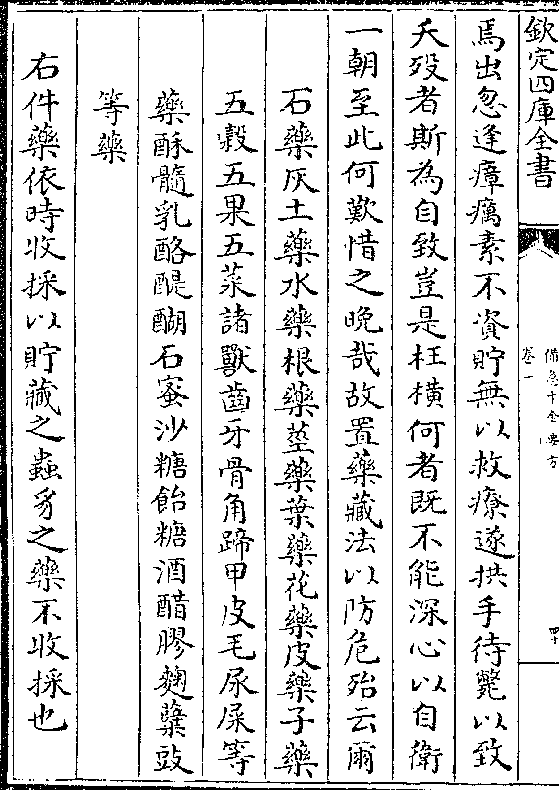 欽定四庫全書
備急千金要方
卷一
四十
焉出忽逢瘴癘素不資貯無以救療遂拱手待斃以致
夭殁者斯為自致豈是枉橫何者既不能深心以自衛
一朝至此何歎惜之晚哉故置藥藏法以防危殆云爾
石藥灰土藥水藥根藥莖藥葉藥花藥皮藥子藥
五榖五果五菜諸獸齒牙骨角蹄甲皮毛尿屎等
藥酥髓乳酪醍醐石蜜沙糖飴糖酒醋膠麴糵豉
等藥
右件藥依時收採以貯藏之蟲豸之藥不收採也